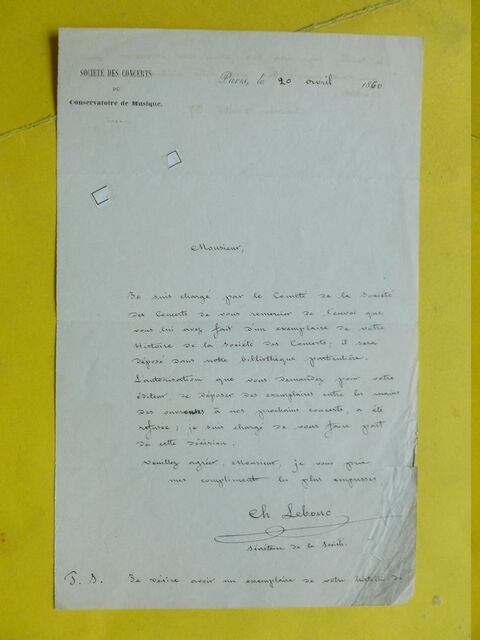 SOCIÉTÉ DES CONCERTS
DU
Conservatoire de Musique.
Paris, le 20 avril 1860
Monsieur,
Je suis chargé par le Comité de la Société
des Concerts de vous remercier de l'envoi que
vous lui avez fait d'un exemplaire de votre
Histoire de la Société des Concerts; il sera
déposé dans notre bibliothèque particulière.
L'autorisation que vous demandez pour votre
éditeur de déposer des exemplaires entre les mains
des ouvreuses à nos prochains concerts, a été
refusée; je suis chargé de vous faire part
de cette décision.
Veuillez agréer, Monsieur, je vous prie
mes compliments les plus empressés
Ch Lebouc
Sécrétaire de la Société.
P. S. Je désire avoir un exemplaire de votre histoire de